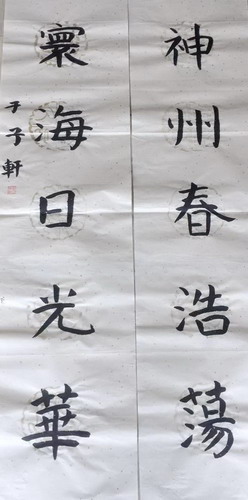 神州春浩蕩
寰海日光華
于子軒